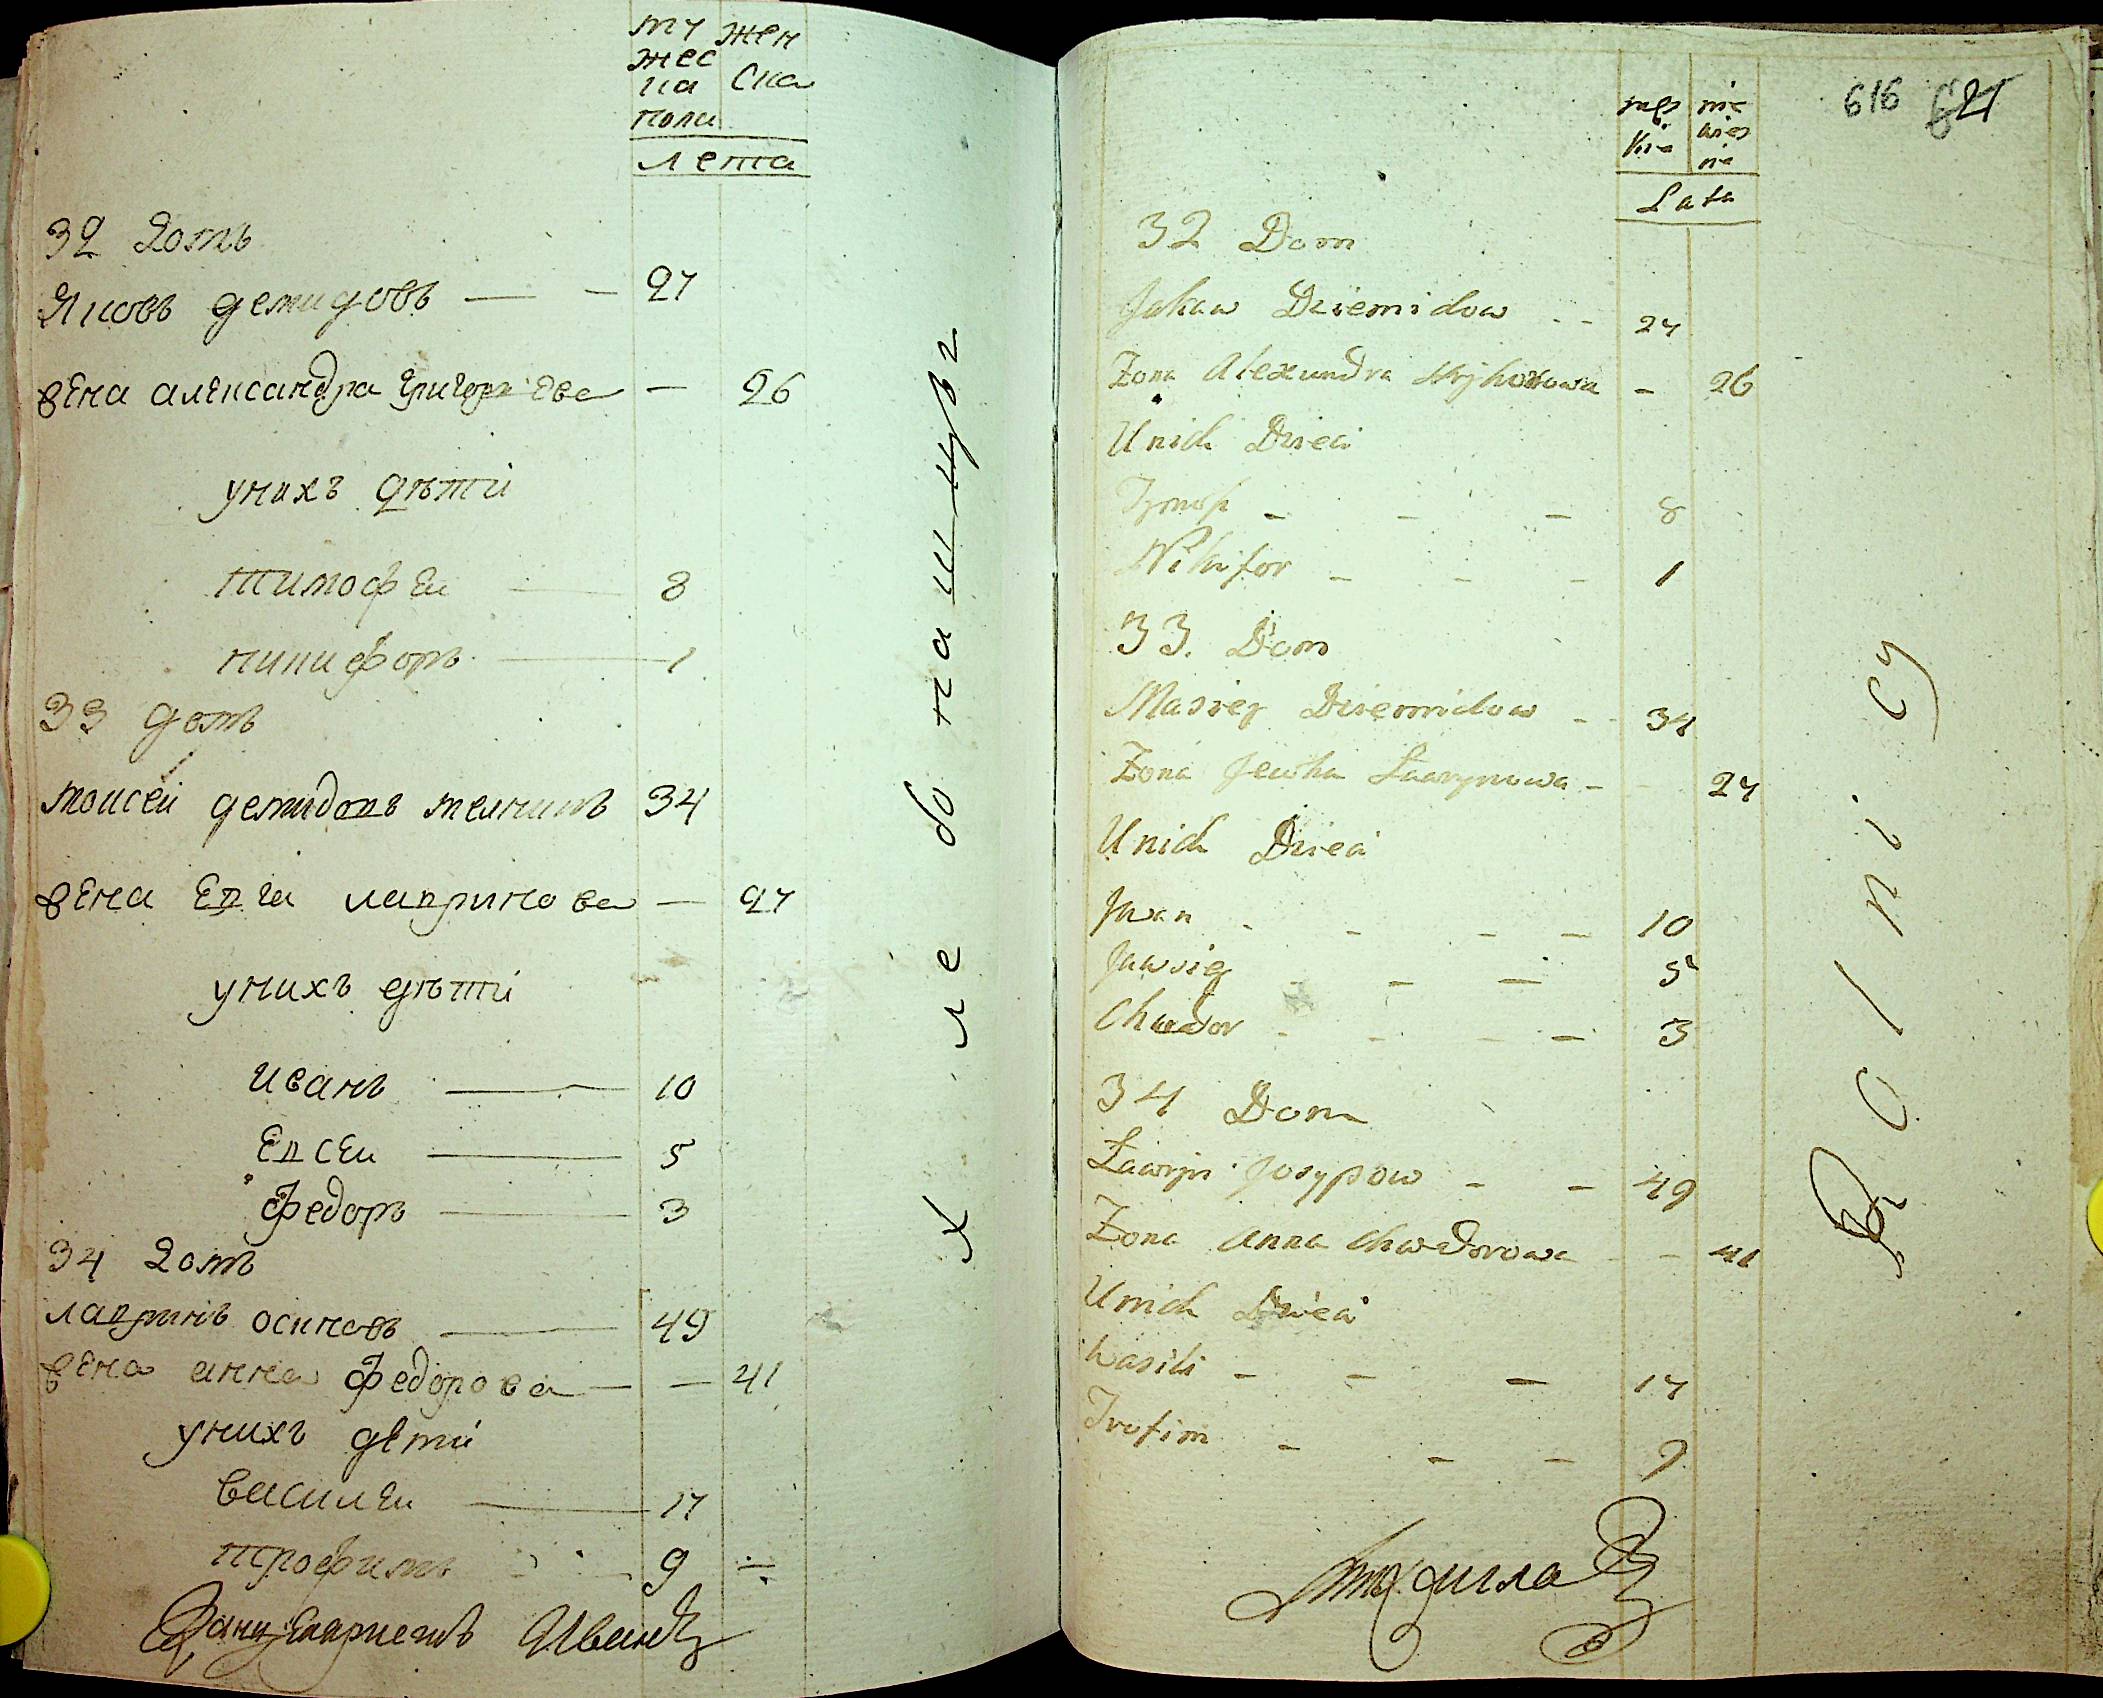 му жен
жес ска
ка
полы
лета
32 домъ
Яковъ демидовъ — — 27
жена александра григорьева — 26
унихъ дѣтй
тимофѣи — 8
никифоръ — 1
33 домъ
моисей демидовъ мелникъ 34
жена Евга лавринова — 27
унихъ дѣтй
иванъ — 10
Евсѣи — 5
Федоръ — 3
34 домъ
лавринъ осиповъ — 49
жена анна Федорова — — 41
унихъ дѣтй
василѣи — 17
трофимъ 9
Иванъ
хлебопашцовъ
616 621
męs nie
kie wies
nie
Lata
32 Dom
Jakaw Dziemidow - - 27
Zona Alexandra Hryhorowa - 26
Unich Dzieci
Tymofi - - - 8
Nikifor - - - 1
33. Dom
Masiey Dziemidow - - 34
Zona Jewha Lawrynowa - - 27
Unich Dzieci
Jwan - - - - 10
Jawsiey - - - 5
Chwedor - - - - 3
34 Dom
Lawryn Josypow - - 49
Zona Anna Chwedorowa - - 41
Unich Dzieci
Wasili - - - 17
Trofim - - - 9
Rolnicy